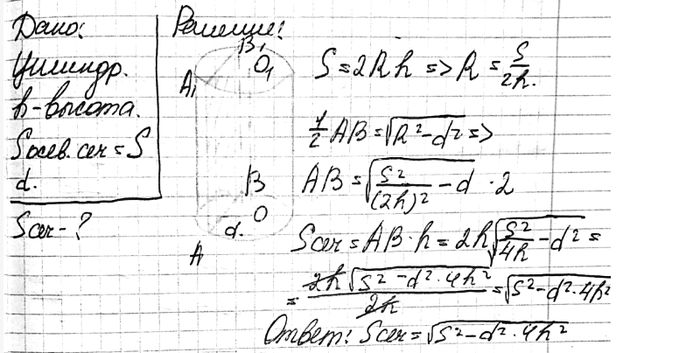 Дано:
Цилиндр.
h-высота.
Sосев.сеч=S
d.
Sсеч-?
Решение:
B₁
O₁
A₁
B
O
d.
A
S=2Rh=>R=S/2h.
1/2 AB=√(R²-d²)=>
AB=√(S²/(2h)²-d)·2
Sсеч=AB·h=2h√(S²/4h-d²)=
=2h√(S²-d²·4h²)/2h=√(S²-d²·4h²)
Ответ: Sсеч=√(S²-d²·4h²)